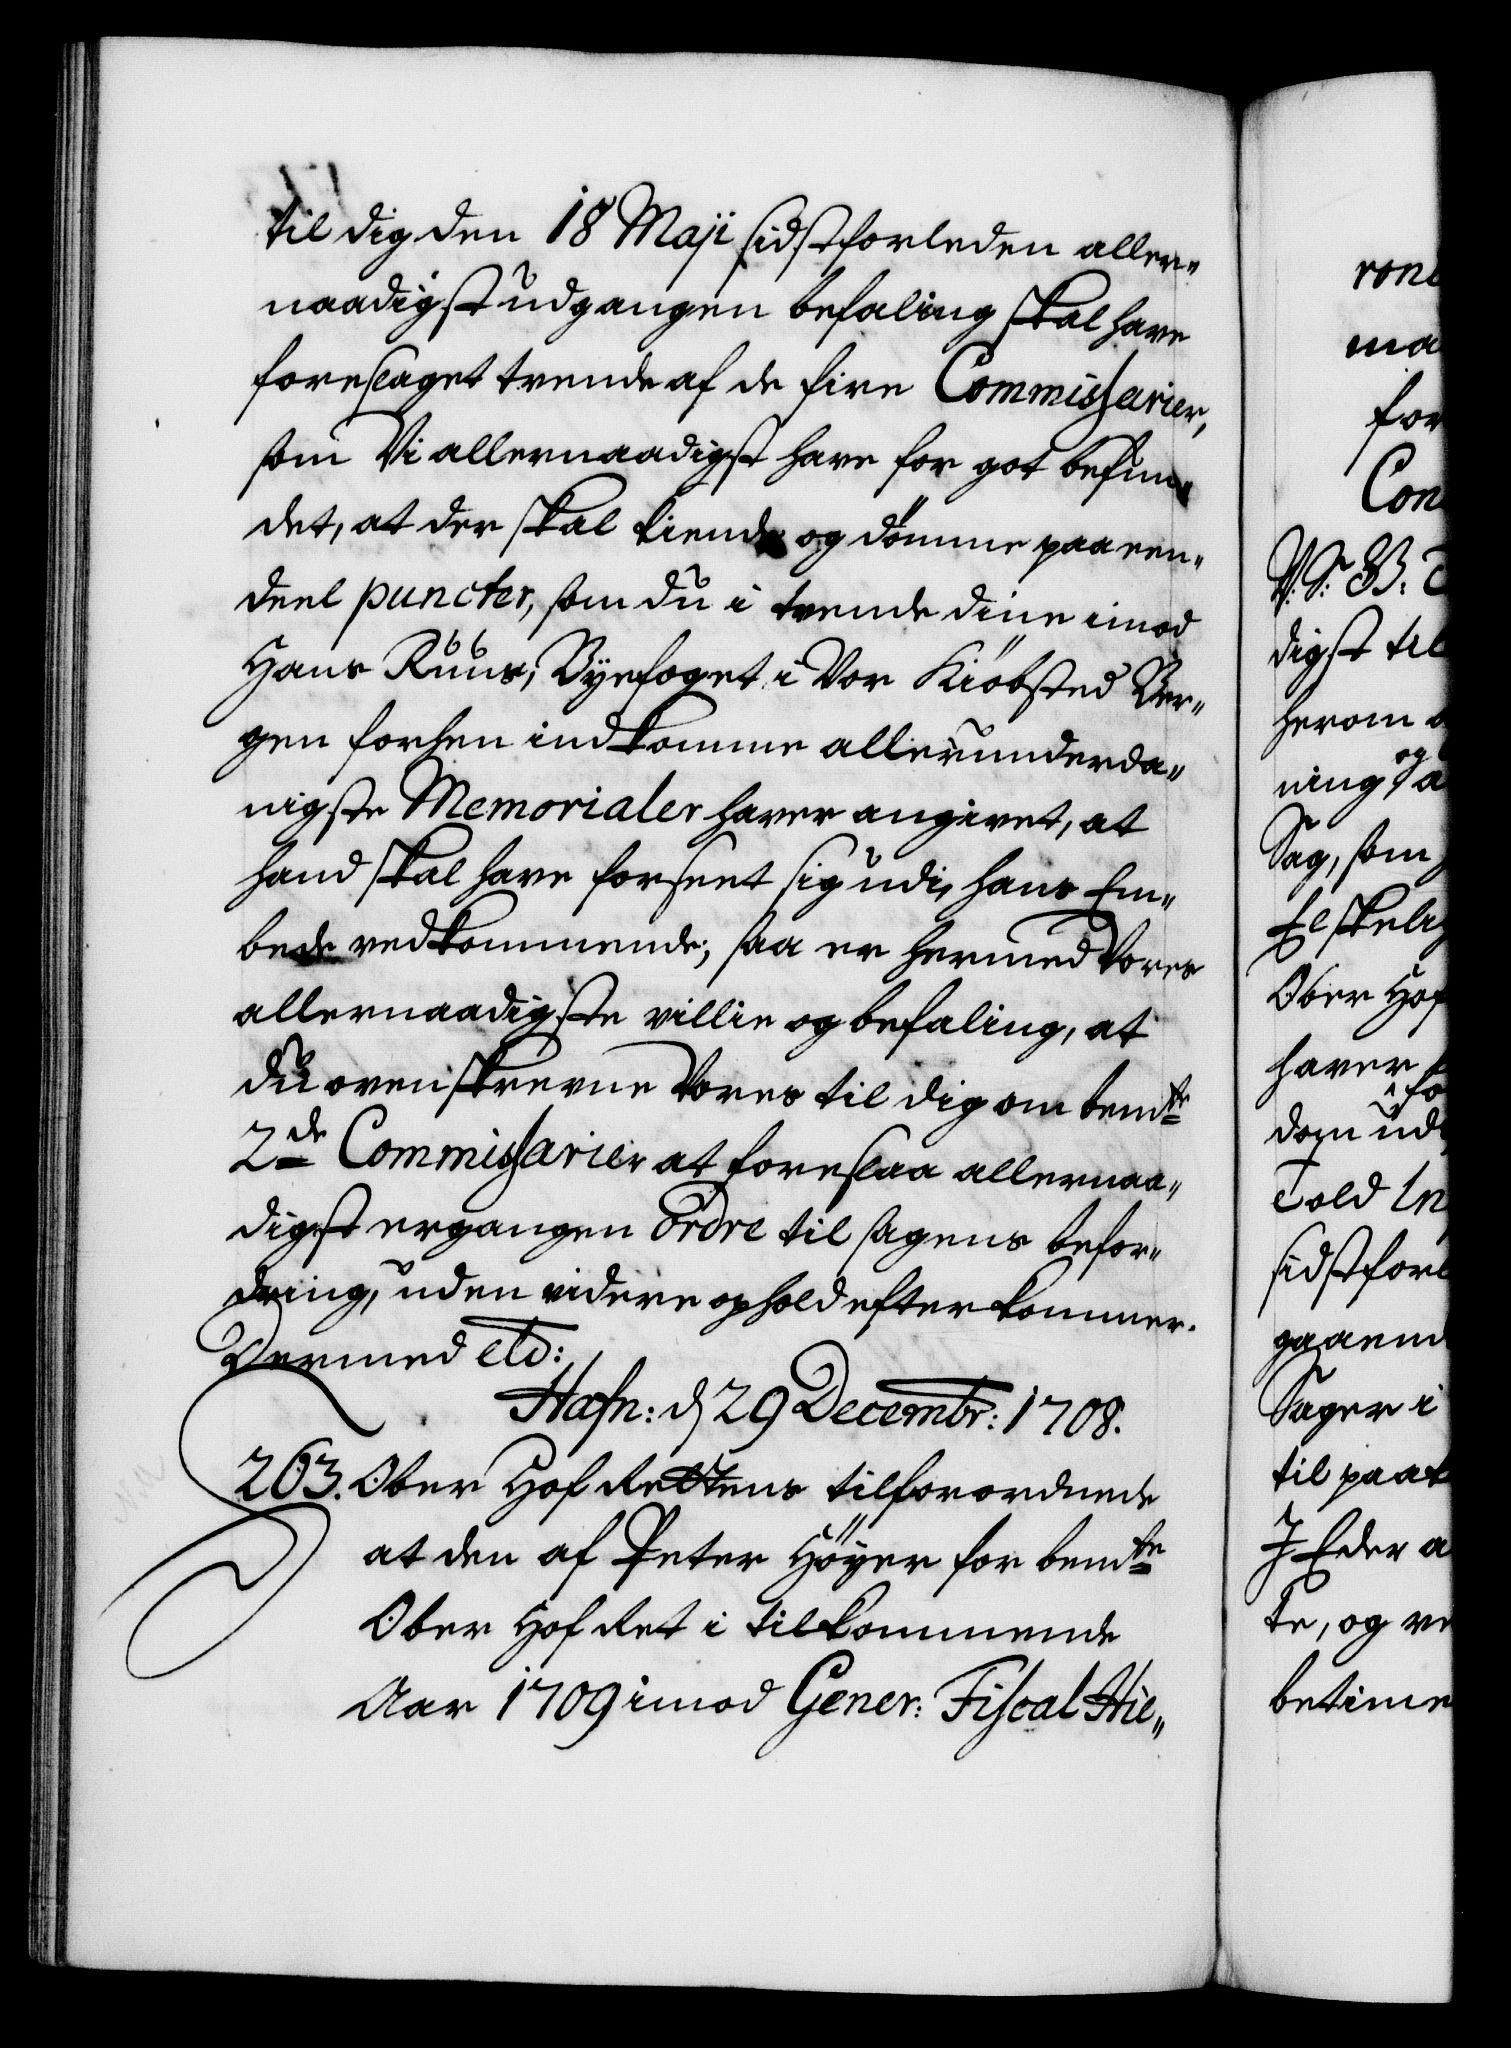 til dig den 18 Maji sidstforleden aller-
naadigst udgangen befaling skal have
foreslaget tvende af de fire Commissarier,
som Vi allernaadigst have for got befun-
det, at der skal kiende og dömme paa een-
deel puncter, som du i tvende dine imod
Hans Ruus, Byefoget i Vor Kiöbsted Ber-
gen forhen indkomme allerunderda-
nigste Memorialer haver angivet, at
hand skal have forseet sig udi, hans Em-
bede vedkommende; saa er hermed Vores
allernaadigste villie og befaling, at
du ovenskrevne Vores til dig om bemte
2de Commissarier at foreslaa allernaa-
digst ergangen Ordre til sagens befor-
dring, uden videre ophold efterkommer.
Dermed etc:
Hafn: d 29 Decembr: 1708.
263. Ober Hof Rettens tilforordnede
at den af Peter Höyer for bemte
Ober Hof Ret i tilkommende
Aar 1709 imod Gener: Fiscal Hie-
rone
ma
for
Con
V. S. B. T
digst til
herom
ning, og a
Sag, som
Elskelig
Ober Hof
haver
dom ud
Told In
sidstforl
gaaend
Sager i
til paat
I Eder a
te, og ve
betime